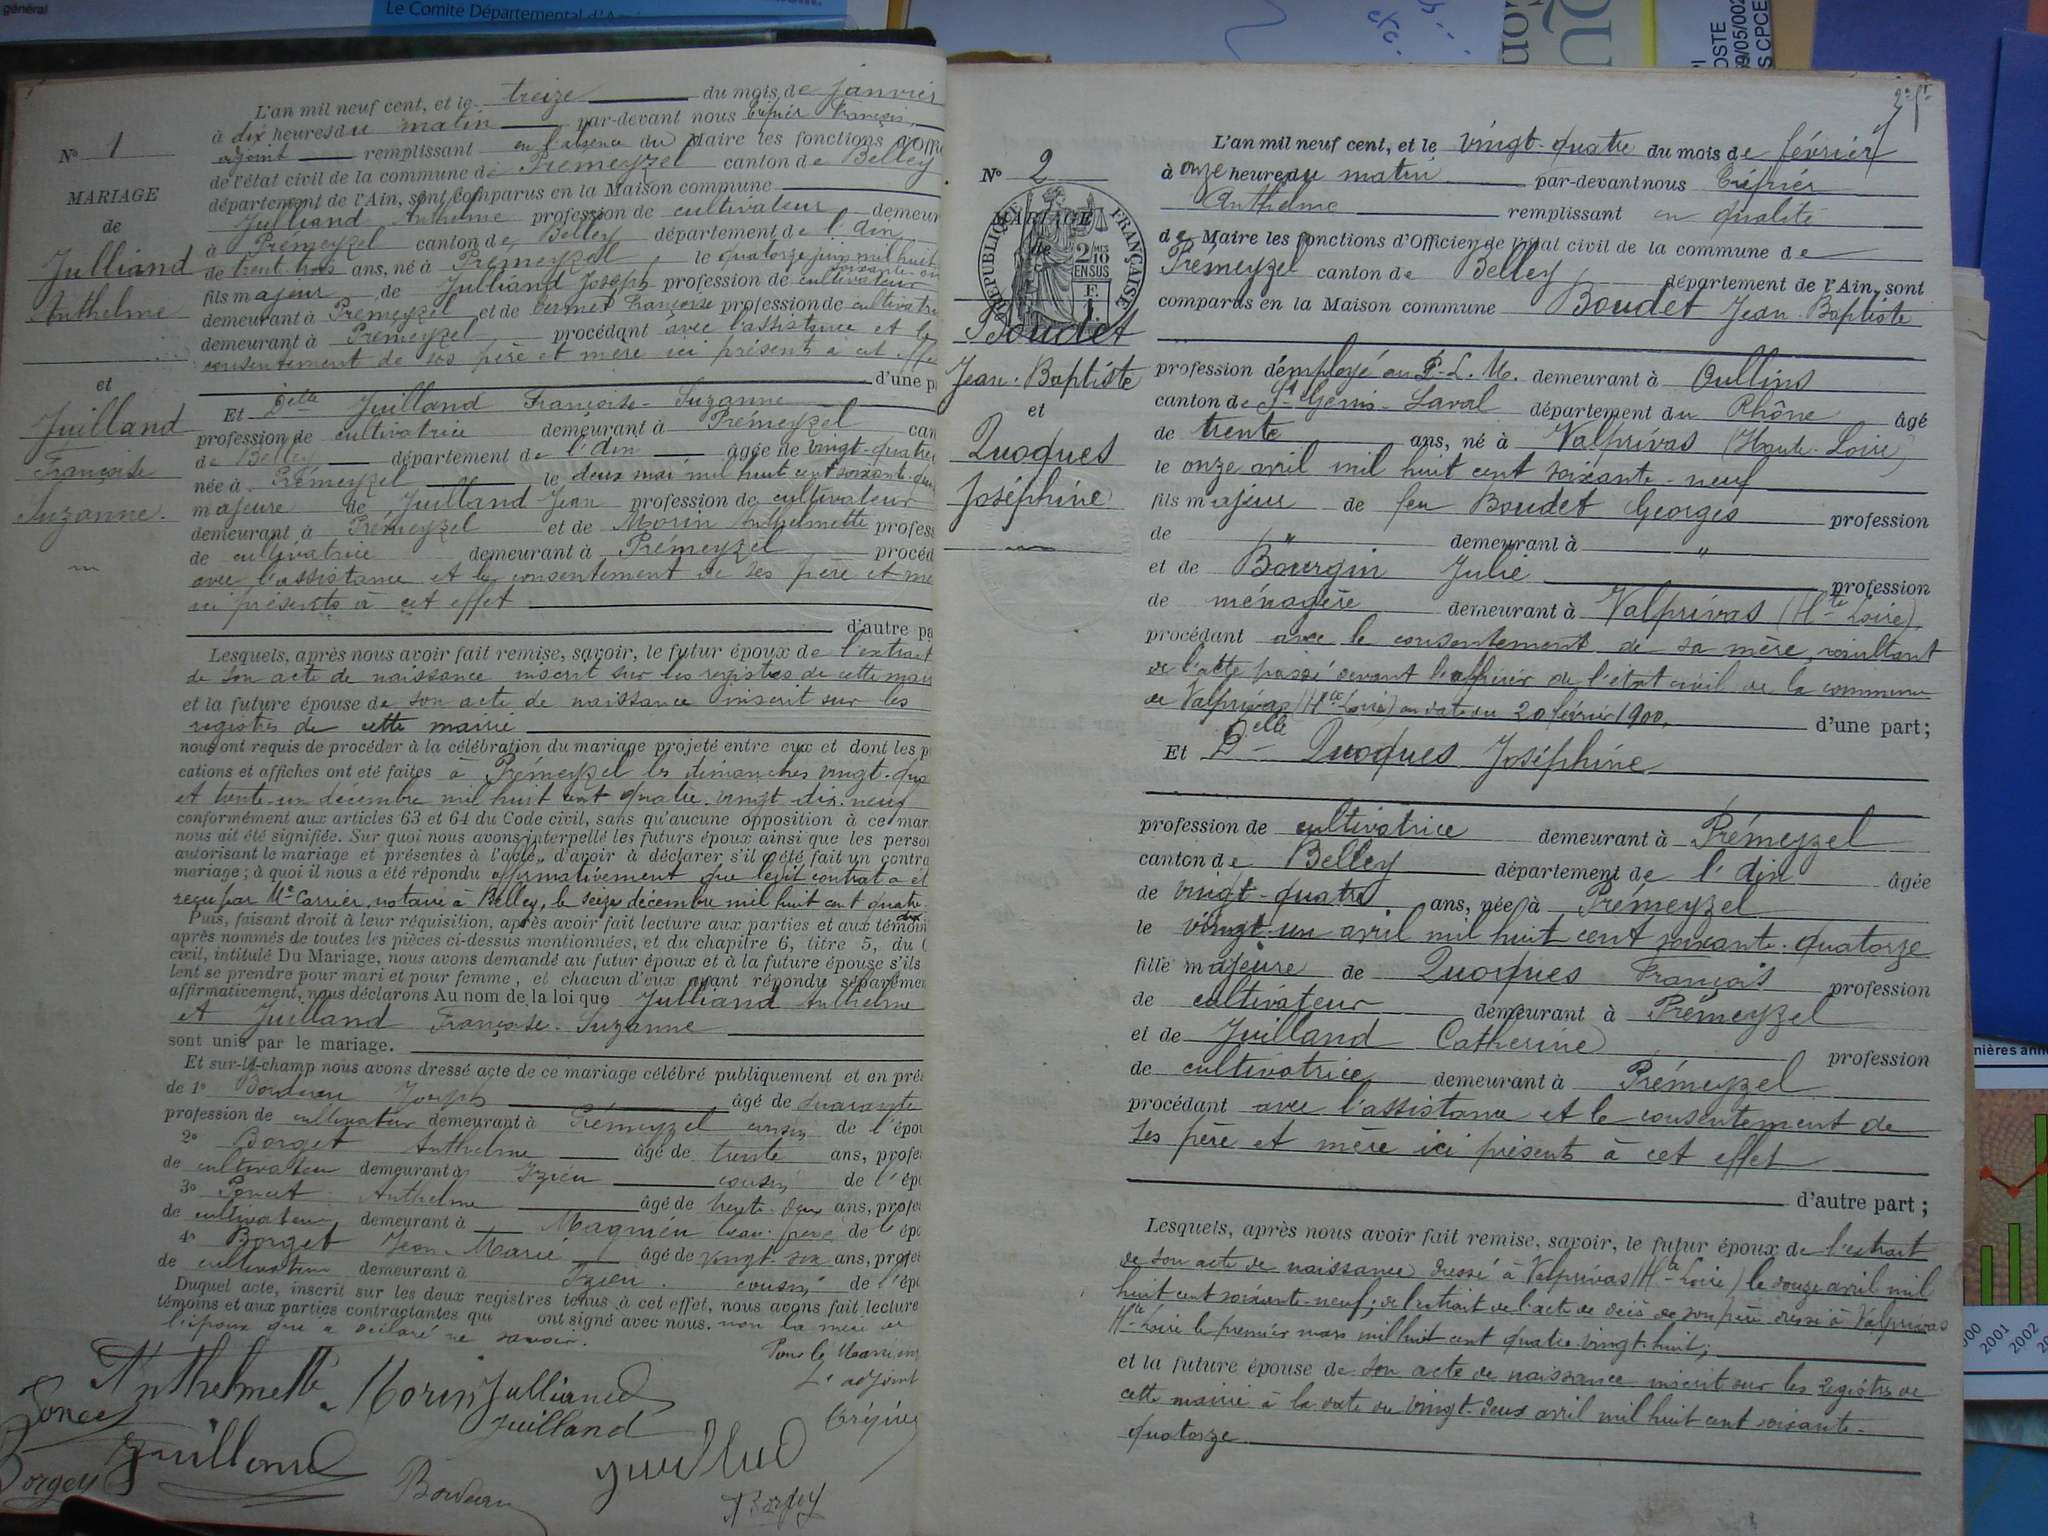 général
Le Comité Départemental d'A
etc.
POSTE
09/05/002
S CPCE
L'an mil neuf cent, et le treize du mois de janvier
à dix heures du matin par-devant nous Crépier François,
adjoint remplissant en l'absence du Maire les fonctions
de l'état civil de la commune de Prémeyzel canton de Belley
département de l'Ain, sont comparus en la Maison commune
Julliand Anthelme profession de cultivateur demeur
à Prémeyzel canton de Belley département de l'Ain
de trente-trois ans, né à Prémeyzel le quatorze juin mil huit
soixante
fils majeur de Julliand Joseph profession de cultivateur
demeurant à Premeyzel et de Françoise profession de cultivatri
demeurant à Premeyzel procédant avec l'assistance et le
consentement de ses père et mère ici présents à cet effe
d'une p
Et Delle Juilland Françoise-Suzanne
profession de cultivatrice demeurant à Prémeyzel can
de Belley département de l'Ain âgée de vingt-quatre
née à Prémeyzel le deux mai mil huit cent soixante-quin
majeure de Juilland Jean profession de cultivateur
demeurant à Prémeyzel et de Morin Anthelmette profess
de cultivatrice demeurant à Prémeyzel procéd
avec l'assistance et le consentement de ses père et mè
ici présents à cet effet
d'autre pa
Lesquels, après nous avoir fait remise, savoir, le futur époux de l'extrait
de son acte de naissance inscrit sur les registres de cette mair
et la future épouse de son acte de naissance inscrit sur les
registres de cette mairie
nous ont requis de procéder à la célébration du mariage projeté entre eux et dont les p
cations et affiches ont été faites à Prémeyzel les dimanches vingt-qua
et trente-un décembre mil huit cent quatre-vingt dix-neuf
conformément aux articles 63 et 64 du Code civil, sans qu'aucune opposition à ce mar
nous ait été signifiée. Sur quoi nous avons interpellé les futurs époux ainsi que les person
autorisant le mariage et présentes à l'acte, d'avoir à déclarer s'il a été fait un contra
mariage; à quoi il nous a été répondu affirmativement que ledit contrat a ét
reçu par Me Carrier, notaire à Belley, le seize décembre mil huit cent quatre-
Puis, faisant droit à leur réquisition, après avoir fait lecture aux parties et aux témoin
après nommés de toutes les pièces ci-dessus mentionnées, et du chapitre 6, titre 5, du C
civil, intitulé Du Mariage, nous avons demandé au futur époux et à la future épouse s'ils
lent se prendre pour mari et pour femme, et chacun d'eux ayant répondu séparémen
affirmativement, nous déclarons Au nom de la loi que Julliand Anthelme
et Juilland Françoise-Suzanne
sont unis par le mariage.
Et sur-le-champ nous avons dressé acte de ce mariage célébré publiquement et en pré
de 1° Joseph âgé de quarante
profession de cultivateur demeurant à Prémeyzel cousin de l'épou
2° Borget Anthelme âgé de trente ans, profes
de cultivateur demeurant à Izieu cousin de l'épo
3° Poncet Anthelme âgé de trente-deux ans, profes
de cultivateur demeurant à Magnieu beau-frère de l'épo
4° Borget Jean-Marie âgé de vingt-six ans, profes
de cultivateur demeurant à Izieu cousin de l'épo
Duquel acte, inscrit sur les deux registres tenus à cet effet, nous avons fait lecture
témoins et aux parties contractantes qui ont signé avec nous. non la mère de
l'époux que a déclaré ne savoir.
Pour le Maire
L'adjoint
Crépier
Anthelmette Morin Julliand
Poncet Juilland
Juilland Juilland
Borgey Borgey
N° 1
MARIAGE
de
Julliand
Anthelme
et
Juilland
Françoise
Suzanne.
L'an mil neuf cent, et le vingt-quatre du mois de février
à onze heures du matin par-devant nous Crépier
Anthelme remplissant en qualité
de Maire les fonctions d'Officier de l'état civil de la commune de
Prémeyzel canton de Belley département de l'Ain, sont
comparus en la Maison commune Boudet Jean-Baptiste
profession d'employé au P.-L.M. demeurant à Oullins
canton de St Genis-Laval département du Rhône âgé
de trente ans, né à Valprivas (Haute-Loire)
le onze avril mil huit cent soixante-neuf
fils majeur de feu Boudet Georges profession
de " demeurant à "
et de Bourgin Julie profession
de ménagère demeurant à Valprivas (Hte Loire),
procédant avec le consentement de sa mère, résultant
de l'acte passé devant l'officier de l'état civil de la commune
de Valprivas (Hte-Loire) en date du 20 février 1900. d'une part;
Et Delle Quoques Joséphine
profession de cultivatrice demeurant à Prémeyzel
canton de Belley département de l'Ain âgée
de vingt-quatre ans, née à Prémeyzel
le vingt-un avril mil huit cent soixante-quatorze
fille majeure de Quoques François profession
de cultivateur demeurant à Prémeyzel
et de Juilland Catherine profession
de cultivatrice demeurant à Prémeyzel
procédant avec l'assistance et le consentement de
ses père et mère ici présents à cet effet
d'autre part;
Lesquels, après nous avoir fait remise, savoir, le futur époux de l'extrait
de son acte de naissance dressé à Valprivas (Hte-Loire) le douze avril mil
huit cent soixante-neuf; de l'extrait de l'acte de décès de son père dressé à Valprivas
Hte-Loire le premier mars mil huit cent quatre-vingt-huit;
et la future épouse de son acte de naissance inscrit sur les registres de
cette mairie à la date du vingt-deux avril mil huit cent soixante-
quatorze.
N° 2
MARIAGE
de
RÉPUBLIQUE FRANÇAISE
2/10
EN SUS
Boudet
Jean-Baptiste
et
Quoques
Joséphine
nières ann
2001
2002